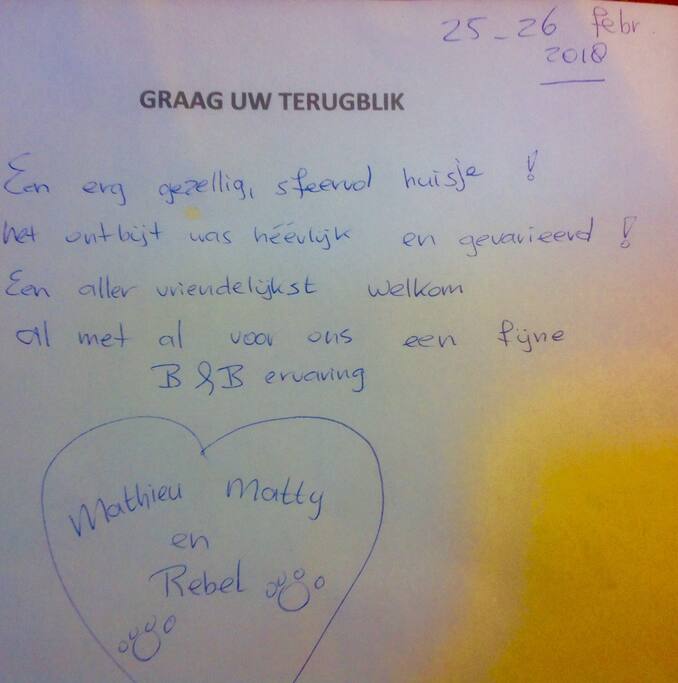 25-26 febr
2018
GRAAG UW TERUGBLIK
Een erg gezellig, sfeervol huisje !
het ontbijt was héérlijk en gevarieerd !
Een aller vriendelijkst welkom
al met al voor ons een fijne
B & B ervaring
Mathieu Matty
en
Rebel